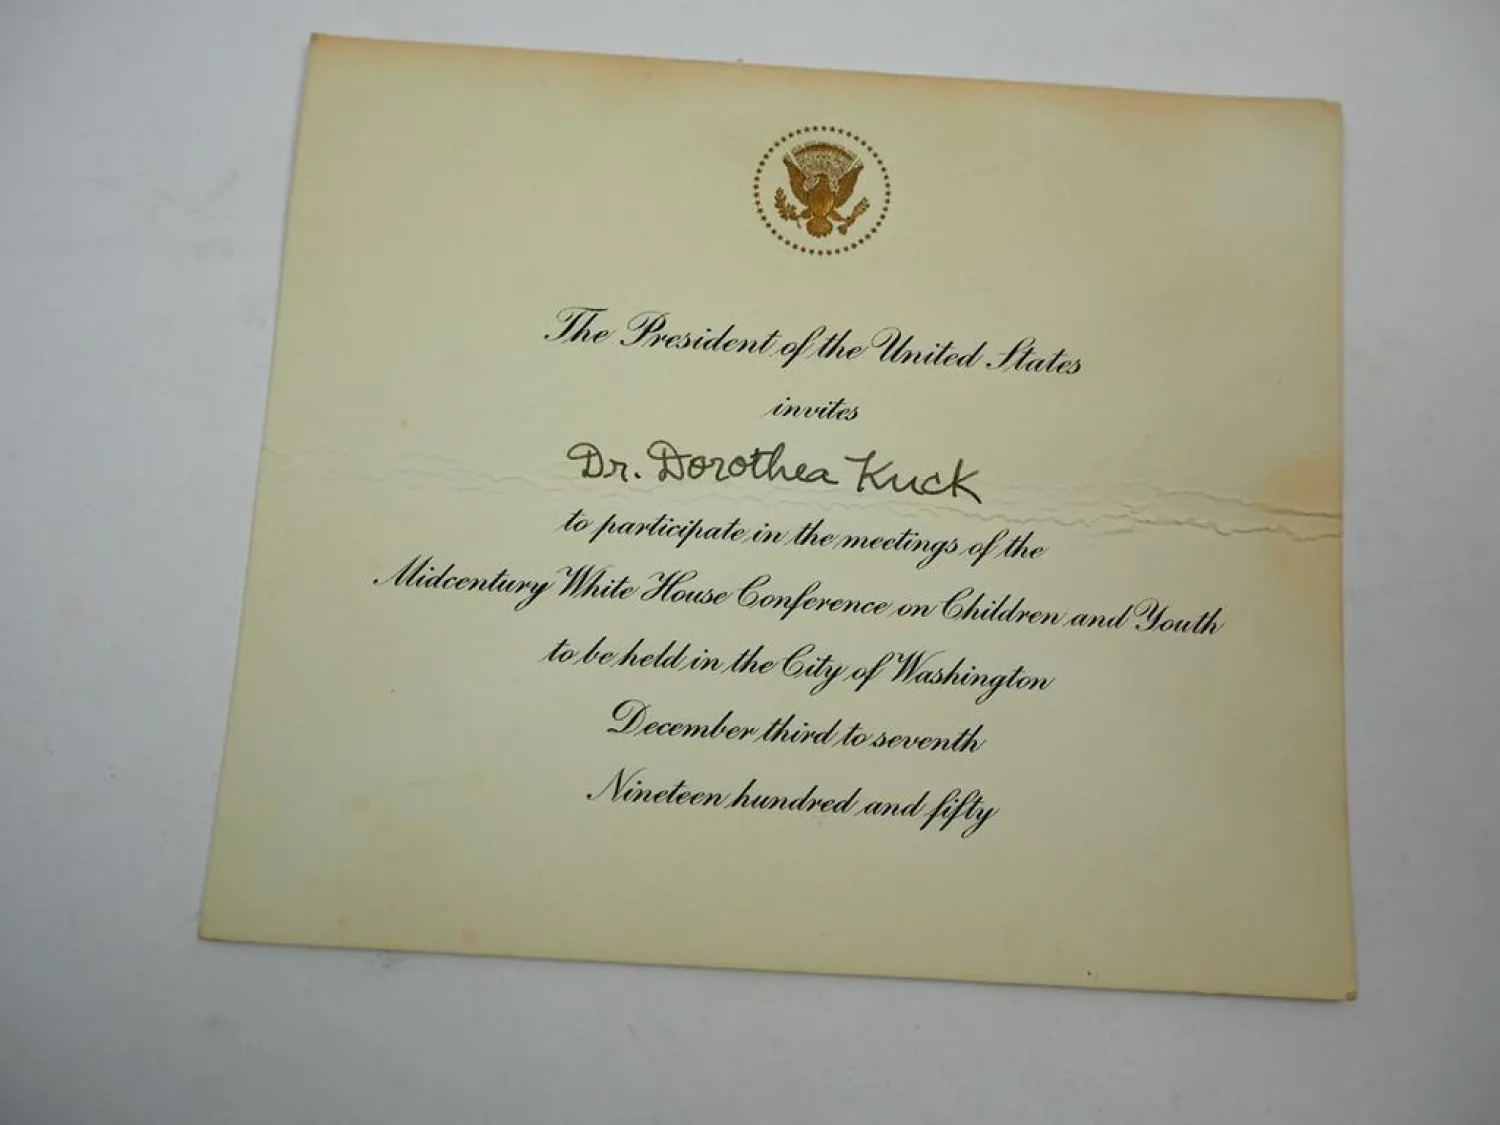 The President of the United States
invites
Dr. Dorothea Kuck
to participate in the meetings of the
Midcentury White House Conference on Children and Youth
to be held in the City of Washington
December third to seventh
Nineteen hundred and fifty